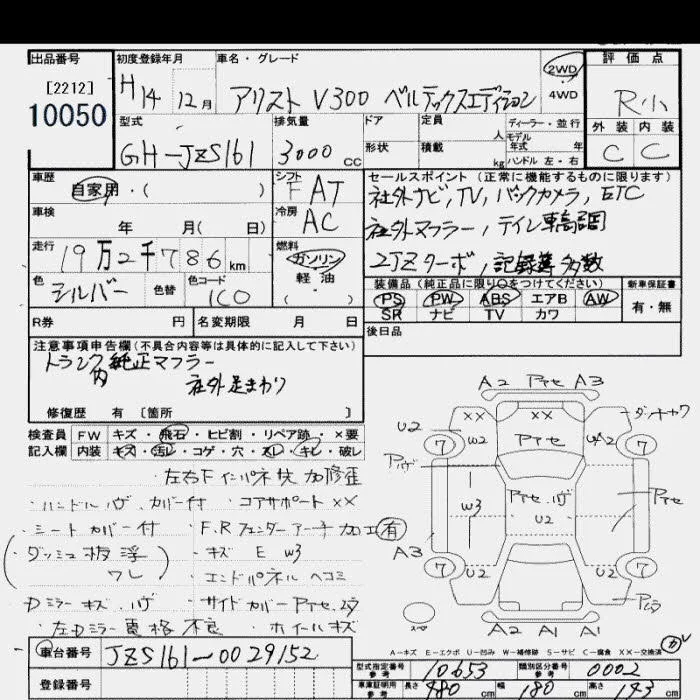 出品番号
[2212]
10050
初度登録年月
H 14 12 月
車名・グレード
アリスト V300 ベルテックスエディション
2WD
4WD
評価点
R小
外装 内装
C C
型式
GH-JZS161
排気量
3000 cc
ドア
形状
定員
人
積載
kg
ディーラー・並行
モデル
年式 年
ハンドル 左・右
車歴
自家用・( )
シフト
F AT
セールスポイント (正常に機能するものに限ります)
社外ナビ, TV, バックカメラ, ETC
社外マフラー, テイン車高調
2JZターボ, 記録簿多数
車検
年 月( 日)
冷房
AC
走行
19万2千786 km
燃料
ガソリン
軽・油
( )
色
シルバー
色替
色コード
1C0
装備品 (純正品に限り○をつけてください)
PS PW ABS エアB AW
SR ナビ TV カワ
新車保証書
有・無
R券 円
名変期限 月 日
後日品
注意事項申告欄(不具合内容等は具体的に記入して下さい)
トランク内 純正マフラー
社外足まわり
修復歴 有 〔箇所 〕
検査員 FW キズ・飛石・ヒビ割・リペア跡・×要
記入欄 内装 キズ・汚レ・コゲ・穴・スレ・キレ・破レ
・ハンドル ハゲ カバー付 ・コアサポート ××
・シートカバー付 ・F,Rフェンダーアーチ加工有
ダッシュ板浮 ・キズ E W3
ワレ ・エンドパネル ヘコミ
・Dミラー キズ.ハゲ ・サイドカバー
・左Dミラー電格不良 ・ホイールキズ
A2 A3
U2 ×× ××
7 W2 7
W3
U2
A3
7 U2 U2 7
A2 A1 A1
スペア
A-キズ E-エクボ U-凹み W-補修跡 S-サビ C-腐食 ××-交換済
車台番号
JZS161-0029152
登録番号
型式指定番号
参考
10653
類別区分番号
参考
0002
車庫証明用
参考
長さ 480 cm 幅 180 cm 高さ 143 cm